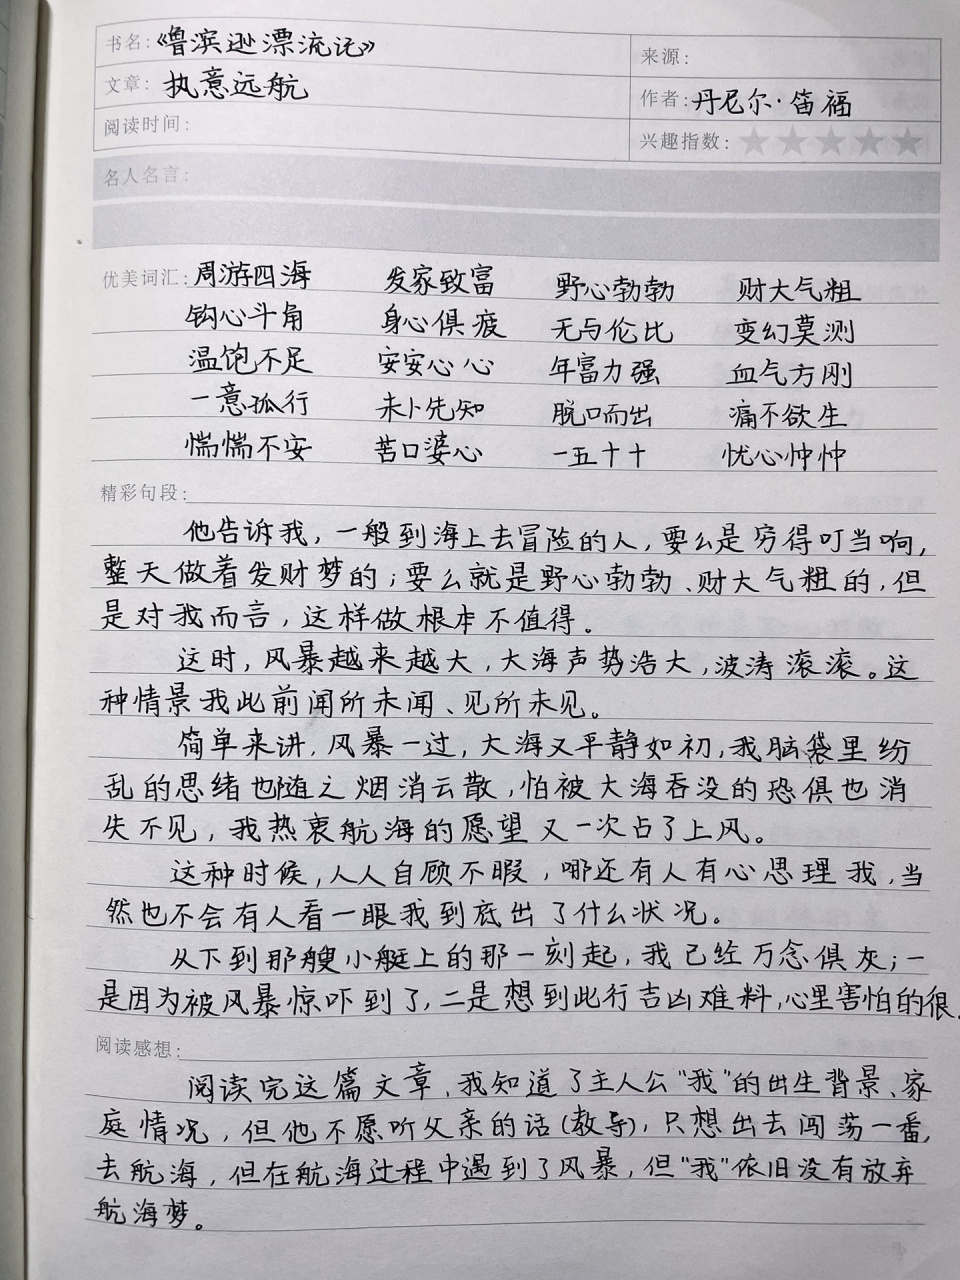 书名:《鲁滨逊漂流记》 来源:
文章: 执意远航 作者:丹尼尔·笛福
阅读时间: 兴趣指数:★★★★★
名人名言:
优美词汇: 周游四海 发家致富 野心勃勃 财大气粗
钩心斗角 身心俱疲 无与伦比 变幻莫测
温饱不足 安安心心 年富力强 血气方刚
一意孤行 未卜先知 脱口而出 痛不欲生
惴惴不安 苦口婆心 一五十十 忧心忡忡
精彩句段:
他告诉我，一般到海上去冒险的人，要么是穷得叮当响，
整天做着发财梦的；要么就是野心勃勃、财大气粗的，但
是对我而言，这样做根本不值得。
这时，风暴越来越大，大海声势浩大，波涛滚滚。这
种情景我此前闻所未闻、见所未见。
简单来讲，风暴一过，大海又平静如初，我脑袋里纷
乱的思绪也随之烟消云散，怕被大海吞没的恐俱也消
失不见，我热衷航海的愿望又一次占了上风。
这种时候，人人自顾不暇，哪还有人有心思理我，当
然也不会有人看一眼我到底出了什么状况。
从下到那艘小艇上的那一刻起，我已经万念俱灰；一
是因为被风暴惊吓到了，二是想到此行吉凶难料，心里害怕的很。
阅读感想:
阅读完这篇文章，我知道了主人公“我”的出生背景、家
庭情况，但他不愿听父亲的话（教导），只想出去闯荡一番，
去航海，但在航海过程中遇到了风暴，但“我”依旧没有放弃
航海梦。